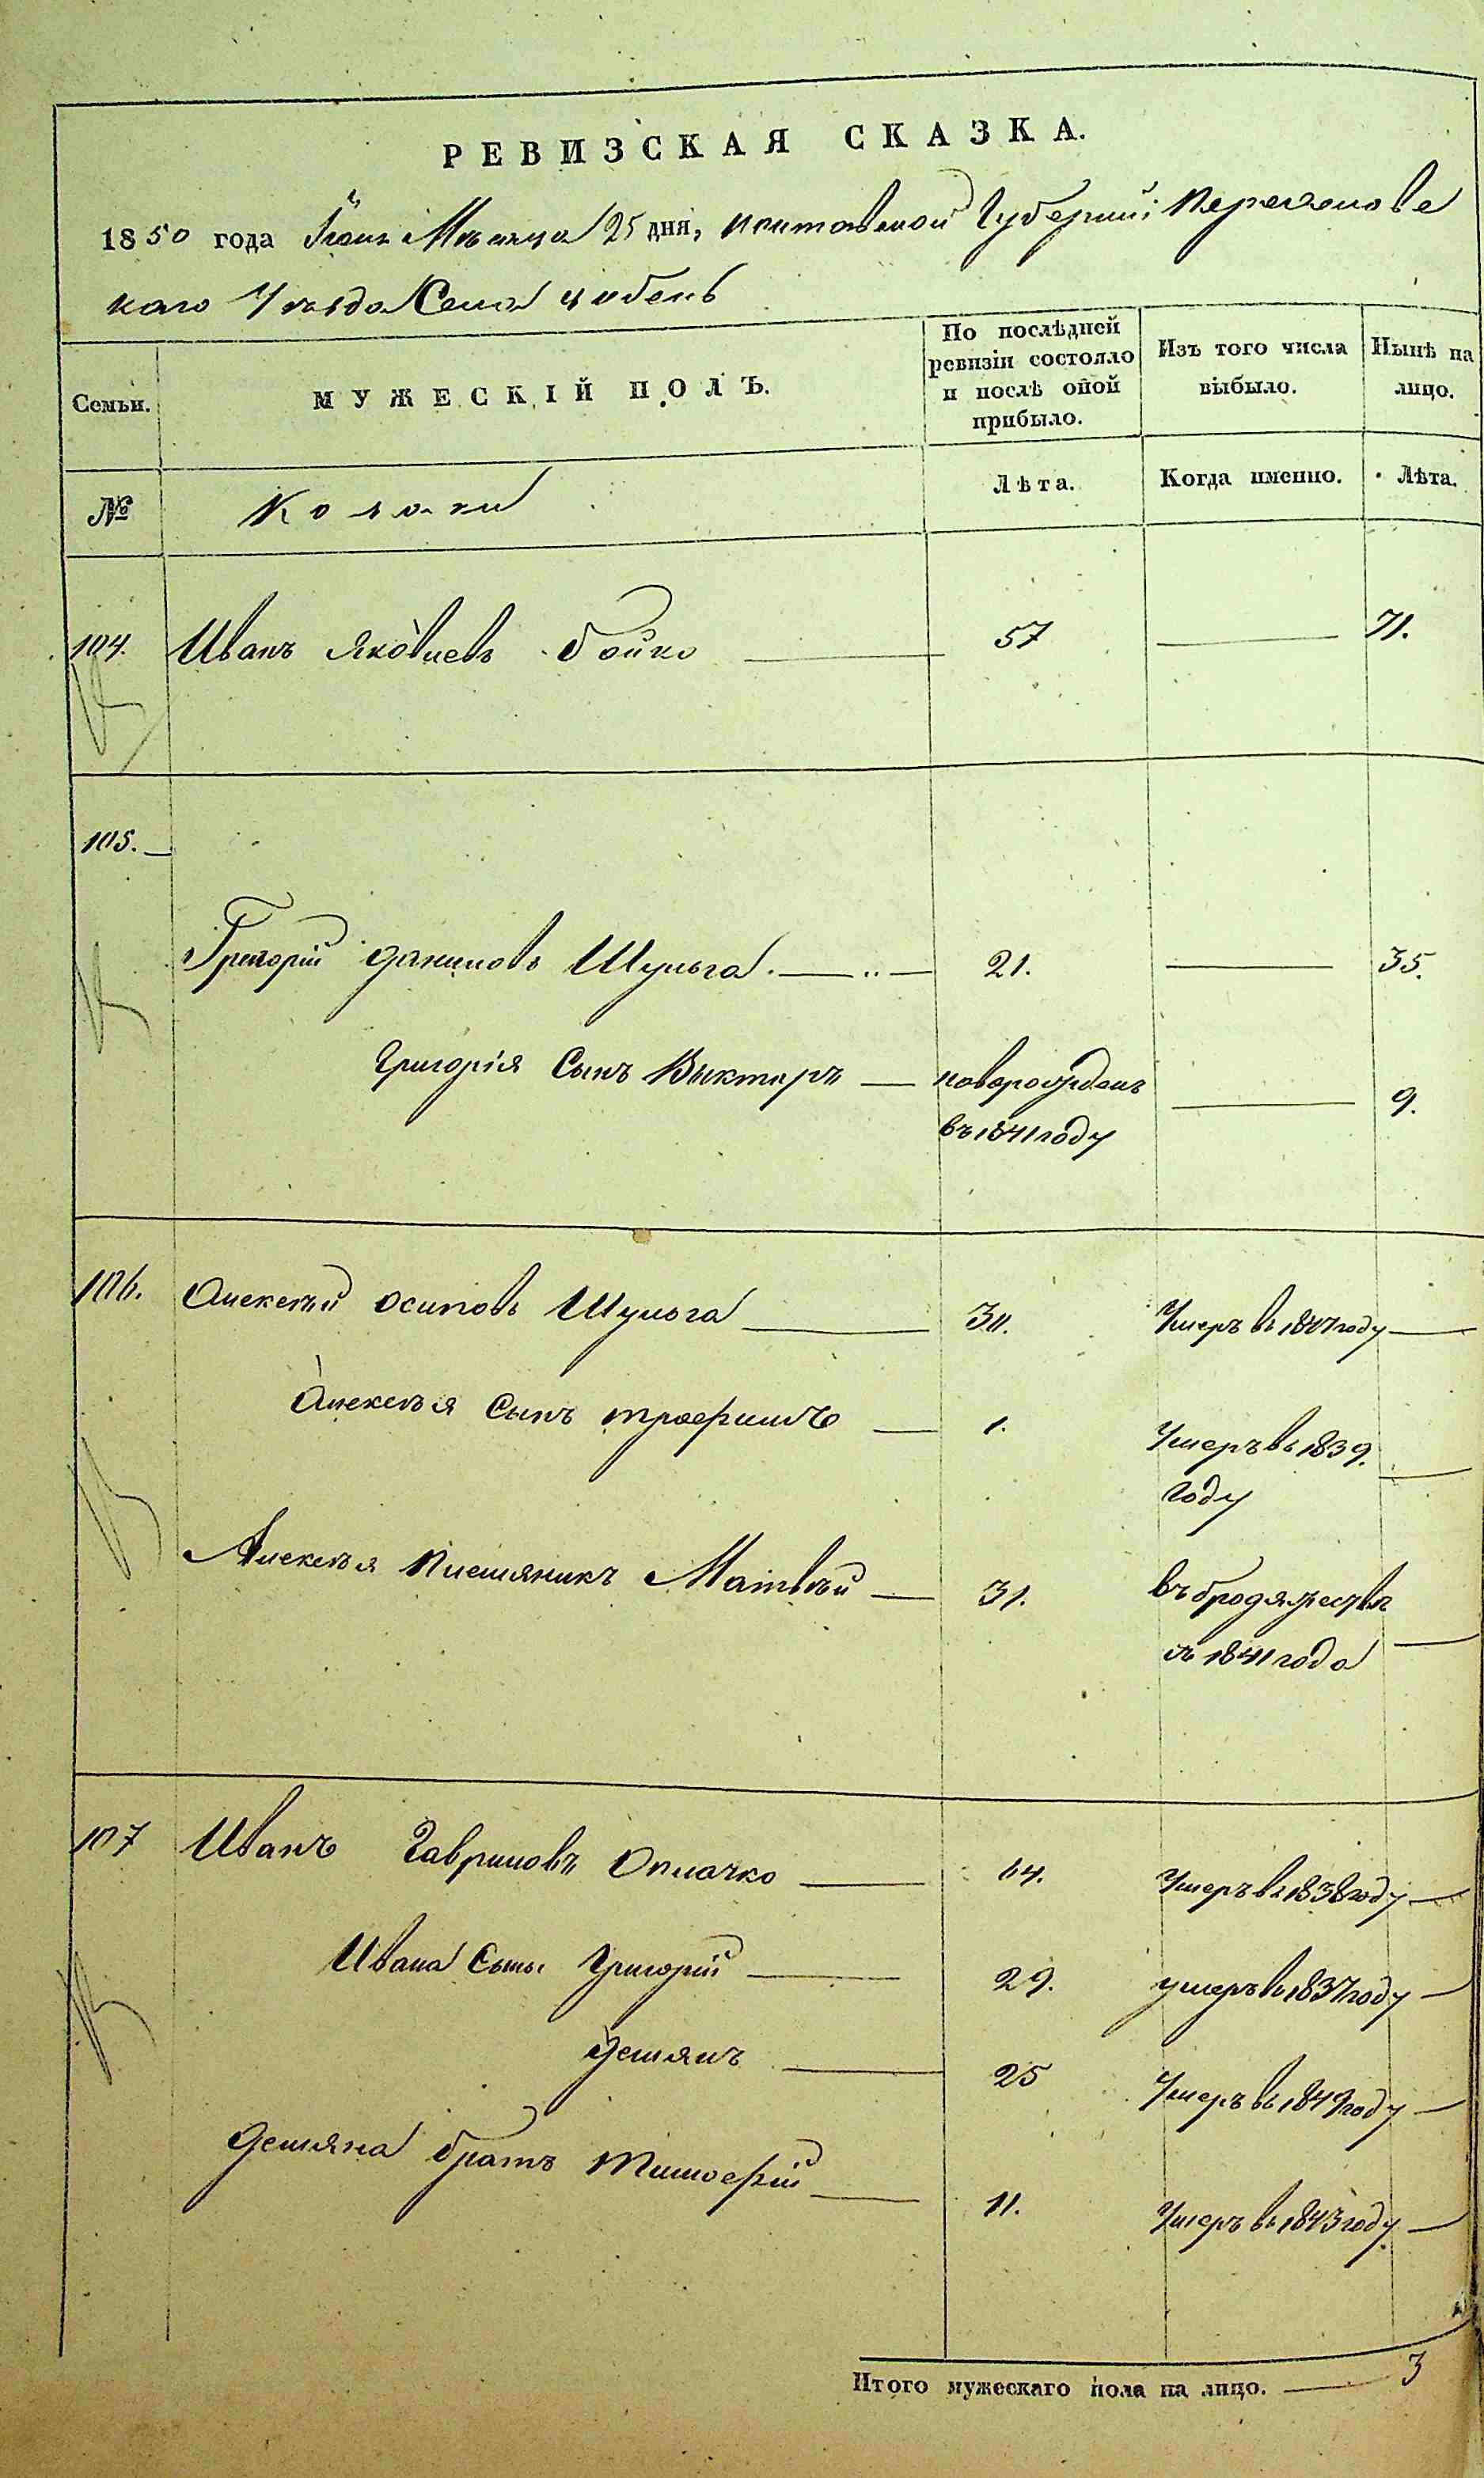 РЕВИЗСКАЯ СКАЗКА.
1850 года Іюня Мѣсяца 25 дня, Полтавской Губерніи Переяславс
каго Уѣзда Села Цибель
Семьи.
МУЖЕСКІЙ ПОЛЪ.
По послѣдней ревизіи состояло и послѣ оной прибыло.
Изъ того числа выбыло.
Нынѣ на лицо.
№
Козаки
Лѣта.
Когда именно.
Лѣта.
104. Иванъ Яковлевъ Бойко 57 71.
105.
Григорій Даниловъ Шульга. 21. 35.
Григорія Сынъ Викторъ новорожденъ 9.
въ 1841 году
106. Алексѣй Осиповъ Шульга Умеръ въ 1847 году
Алексѣя Сынъ Трофимъ 1. Умеръ въ 1839.
году
Алексѣя Племяникъ Матвѣй 31. въ бродяжествѣ
съ 1841 года
107 Иванъ Гавриловъ Оплачко 64. Умеръ въ 1838 году
Ивана Сыны Григорій 29. умеръ въ 1837 году
Демянъ 25 Умеръ въ 1849 году
Демяна братъ Тимофій 11. Умеръ въ 1843 году
Итого мужескаго пола на лицо. 3